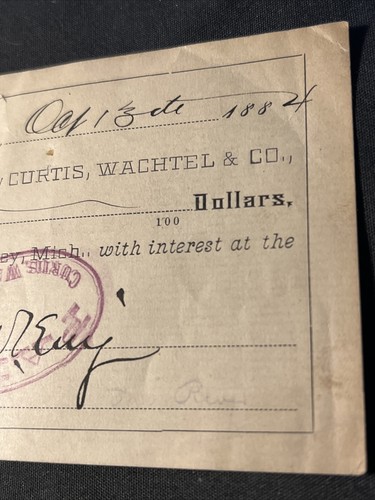 13 1884
CURTIS, WACHTEL & CO.,
Dollars,
100
ey, Mich., with interest at the
CURTIS W